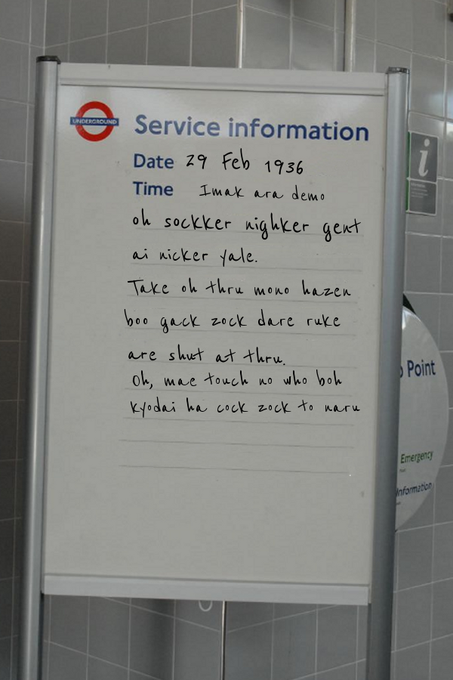 UNDERGROUND
Service information
Date 29 Feb 1936
Time Imak ara demo
oh sockker nighker gent
ai nicker yale.
Take oh thru mono hazen
boo gack zock dare ruke
are shut at thru.
Oh, mae touch no who boh
kyodai ha cock zock to naru
i
Point
Emergency
Information